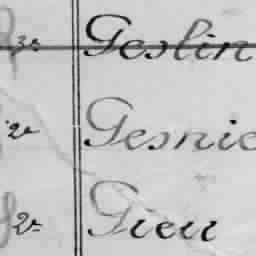 3e Geslin
2e Gesnie
2e Gieu